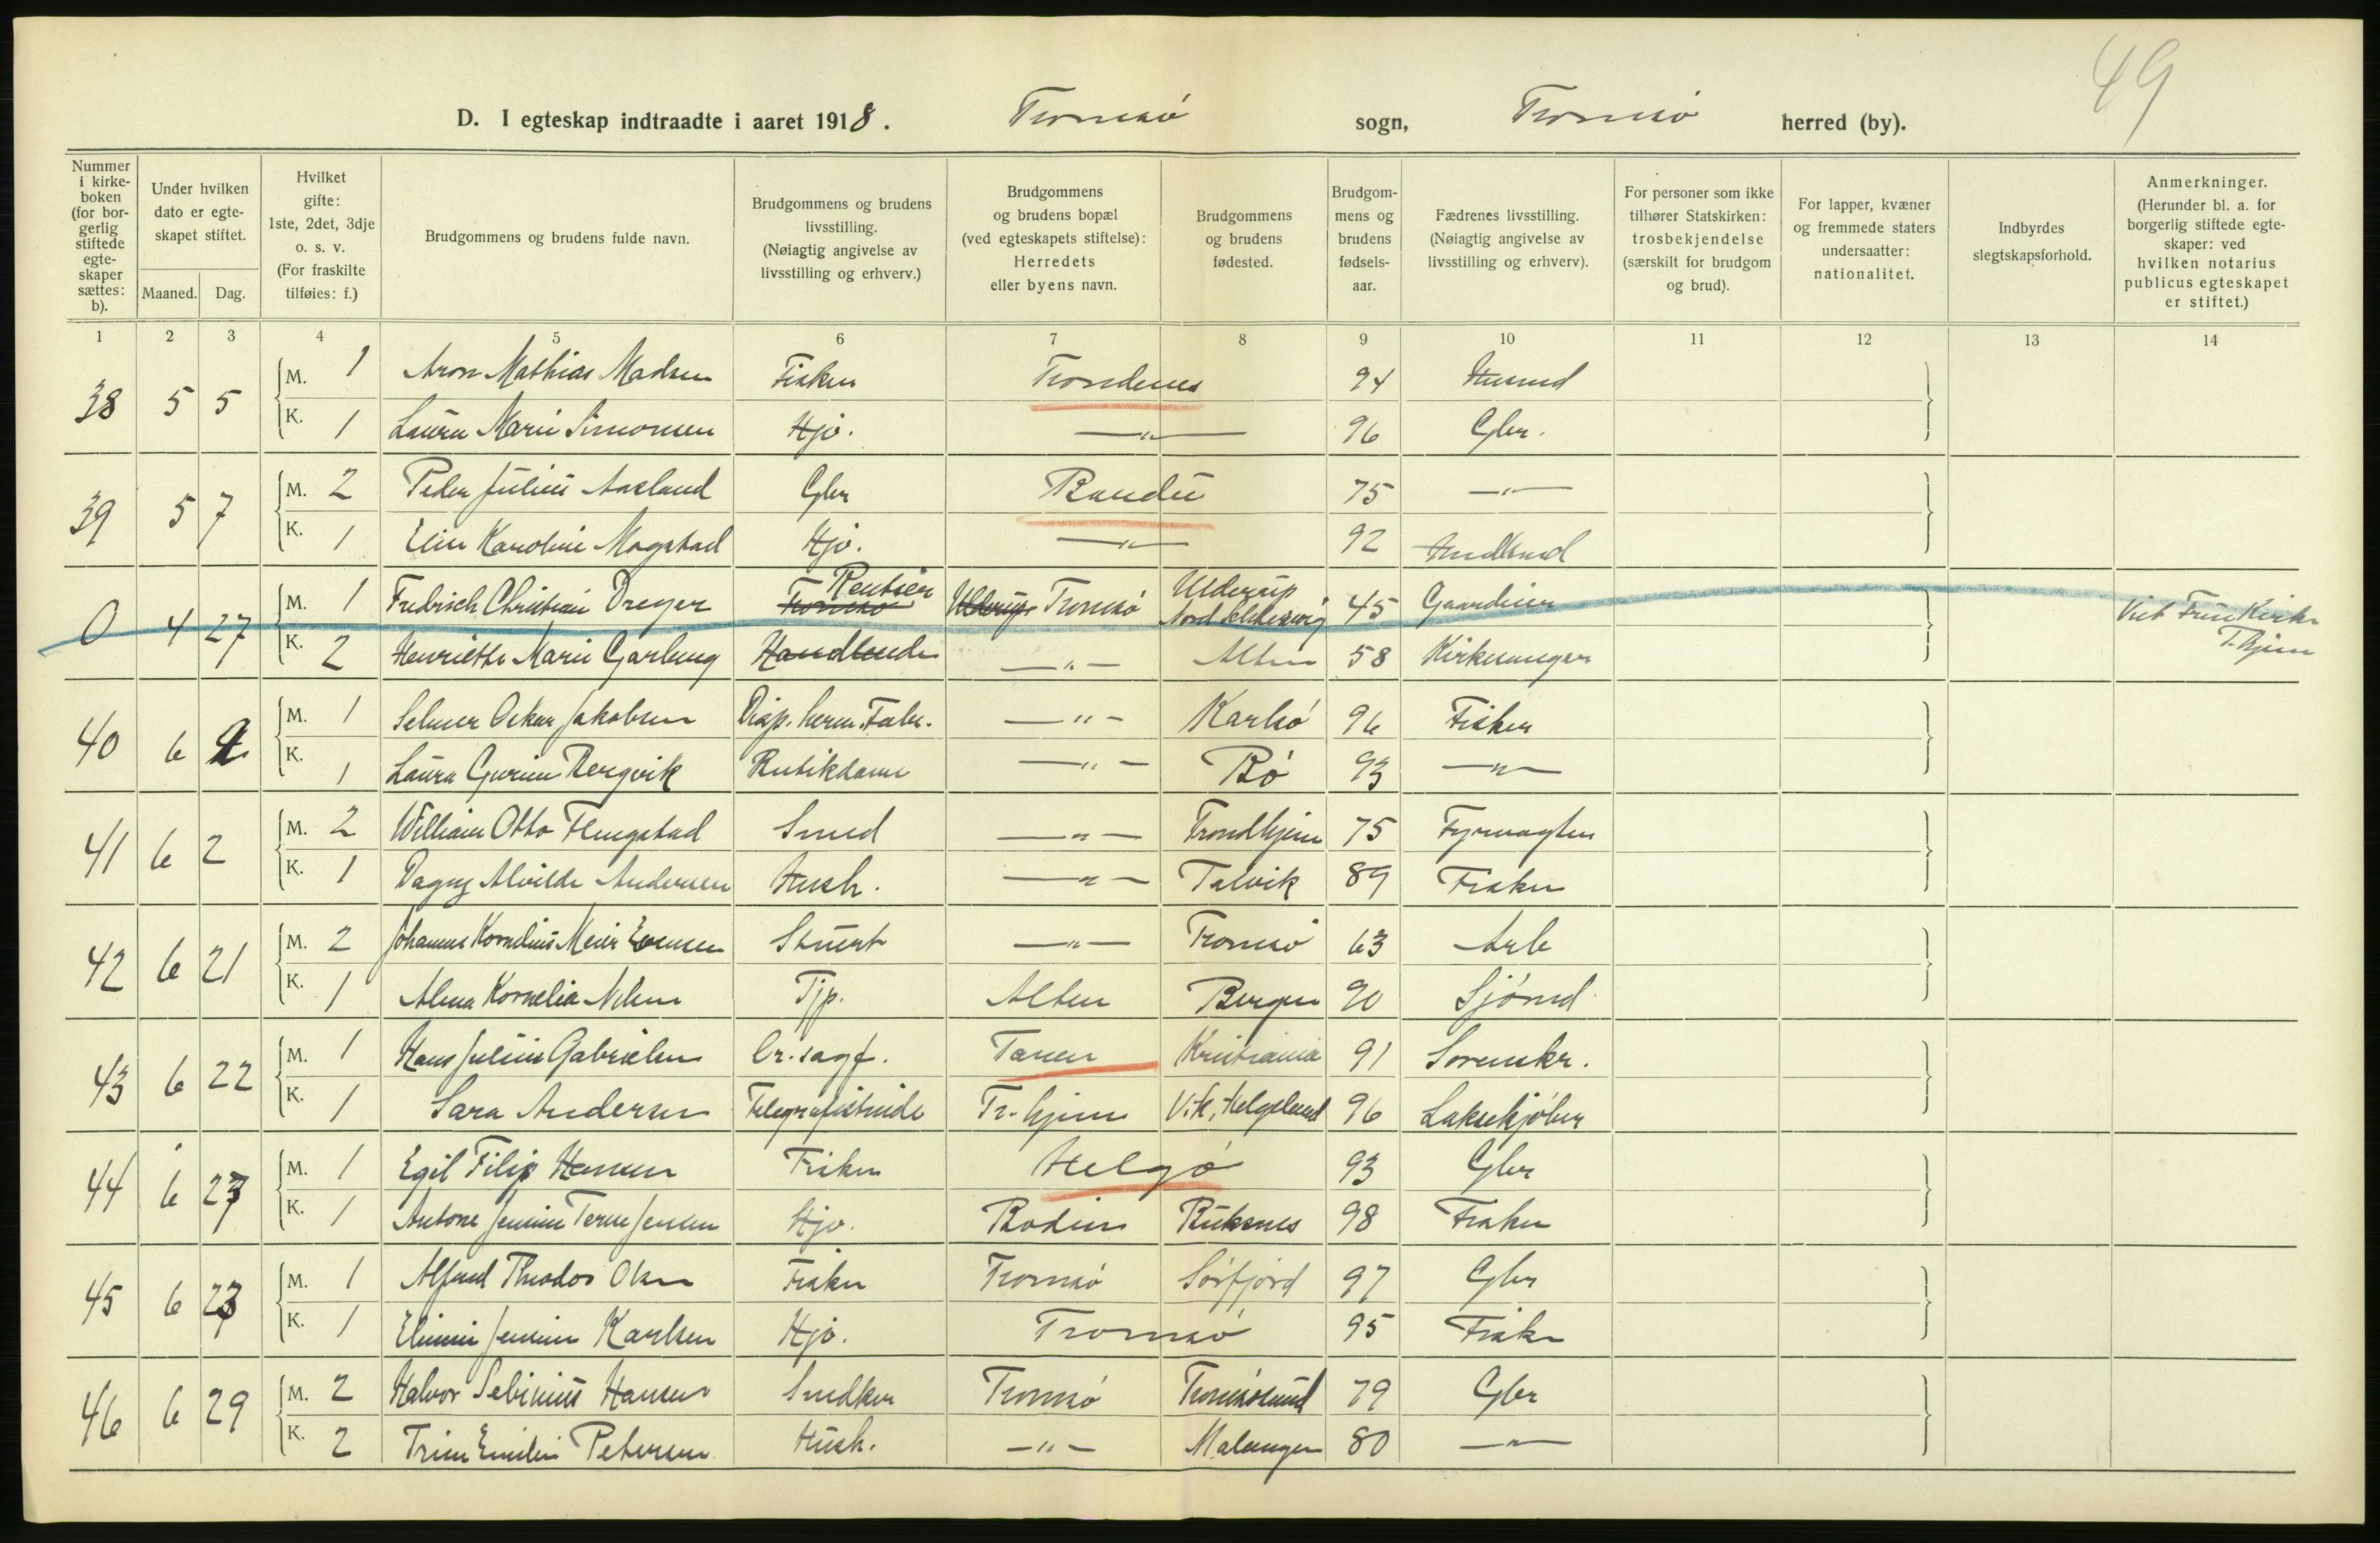 49
D. I egteskap indtraadte i aaret 1918. Tromsø sogn, Tromsø herred (by).
Nummer i kirkeboken (for borgerlig stiftede egteskaper sættes: b).
Under hvilken dato er egteskapet stiftet.
Maaned. Dag.
Hvilket gifte: 1ste, 2det, 3dje o. s. v. (For fraskilte tilføies: f.)
Brudgommens og brudens fulde navn.
Brudgommens og brudens livsstilling. (Nøiagtig angivelse av livsstilling og erhverv.)
Brudgommens og brudens bopæl (ved egteskapets stiftelse): Herredets eller byens navn.
Brudgommens og brudens fødested.
Brudgommens og brudens fødselsaar.
Fædrenes livsstilling. (Nøiagtig angivelse av livsstilling og erhverv).
For personer som ikke tilhører Statskirken: trosbekjendelse (særskilt for brudgom og brud).
For lapper, kvæner og fremmede staters undersaatter: nationalitet.
Indbyrdes slegtskapsforhold.
Anmerkninger. (Herunder bl. a. for borgerlig stiftede egteskaper: ved hvilken notarius publicus egteskapet er stiftet.)
1 2 3 4 5 6 7 8 9 10 11 12 13 14
38 5 5 M. 1 Aron Mathias Madsen Fisker Trondenes 94 Husmd
K. 1 Laura Marie Simonsen Hjv. —"— 96 Gbr.
39 5 7 M. 2 Peder Julius Aasland Gbr 75 —"—
K. 1 Karoline Mogstad Hjv. —"— 92
0 4 27 M. 1 Fredrisch Christian Dreyer Tromsø Rentier Ulderup Tromsø Ulderup Nord Schleswig 45 Gaardeier
K. 2 Henriette Marie Garberg Handlende —"— Alten 58 Kirkesanger
Frue Kirke T.hjem
40 6 2 M. 1 Selmer Oskar Jakobsen Disp. herm. Fabr. —"— Karlsø 96 Fisker
K. 1 Laura Bergvik Butikdame —"— Bø 93 —"—
41 6 2 M. 2 William Otto Flengstad Smed —"— Trondhjem 75 Fyrvagter
K. 1 Dagny Alvilde Andersen Hush. —"— Talvik 89 Fisker
42 6 21 M. 2 Johannes Kornelius Meier Evensen Stuert —"— Tromsø 63 Arb
K. 1 Alma Kornelia Nilsen Tjp. Alten Bergen 90 Sjømd
43 6 22 M. 1 Hans Julius Gabrielsen O.r.sagf. Tanen Kristiania 91 Sorenskr.
K. 1 Sara Andersen Telegrafistinde Tr.hjem Vik, Helgeland 96 Laksekjøber
44 6 23 M. 1 Egil Filip Hansen Fisker Helgø 93 Gbr
K. 1 Antone Jensine Jensen Hjv. Bodin Buksnes 98 Fisker
45 6 23 M. 1 Alfred Theodor Olsen Fisker Tromsø Sørfjord 97 Gbr
K. 1 Jensine Karlsen Hjv. Tromsø 95 Fisker
46 6 29 M. 2 Halvor Sebinius Hansen Snedker Tromsø Tromsøsund 79 Gbr
K. 2 Trine Emilie Petersen Hush. —"— Malangen 80 —"—